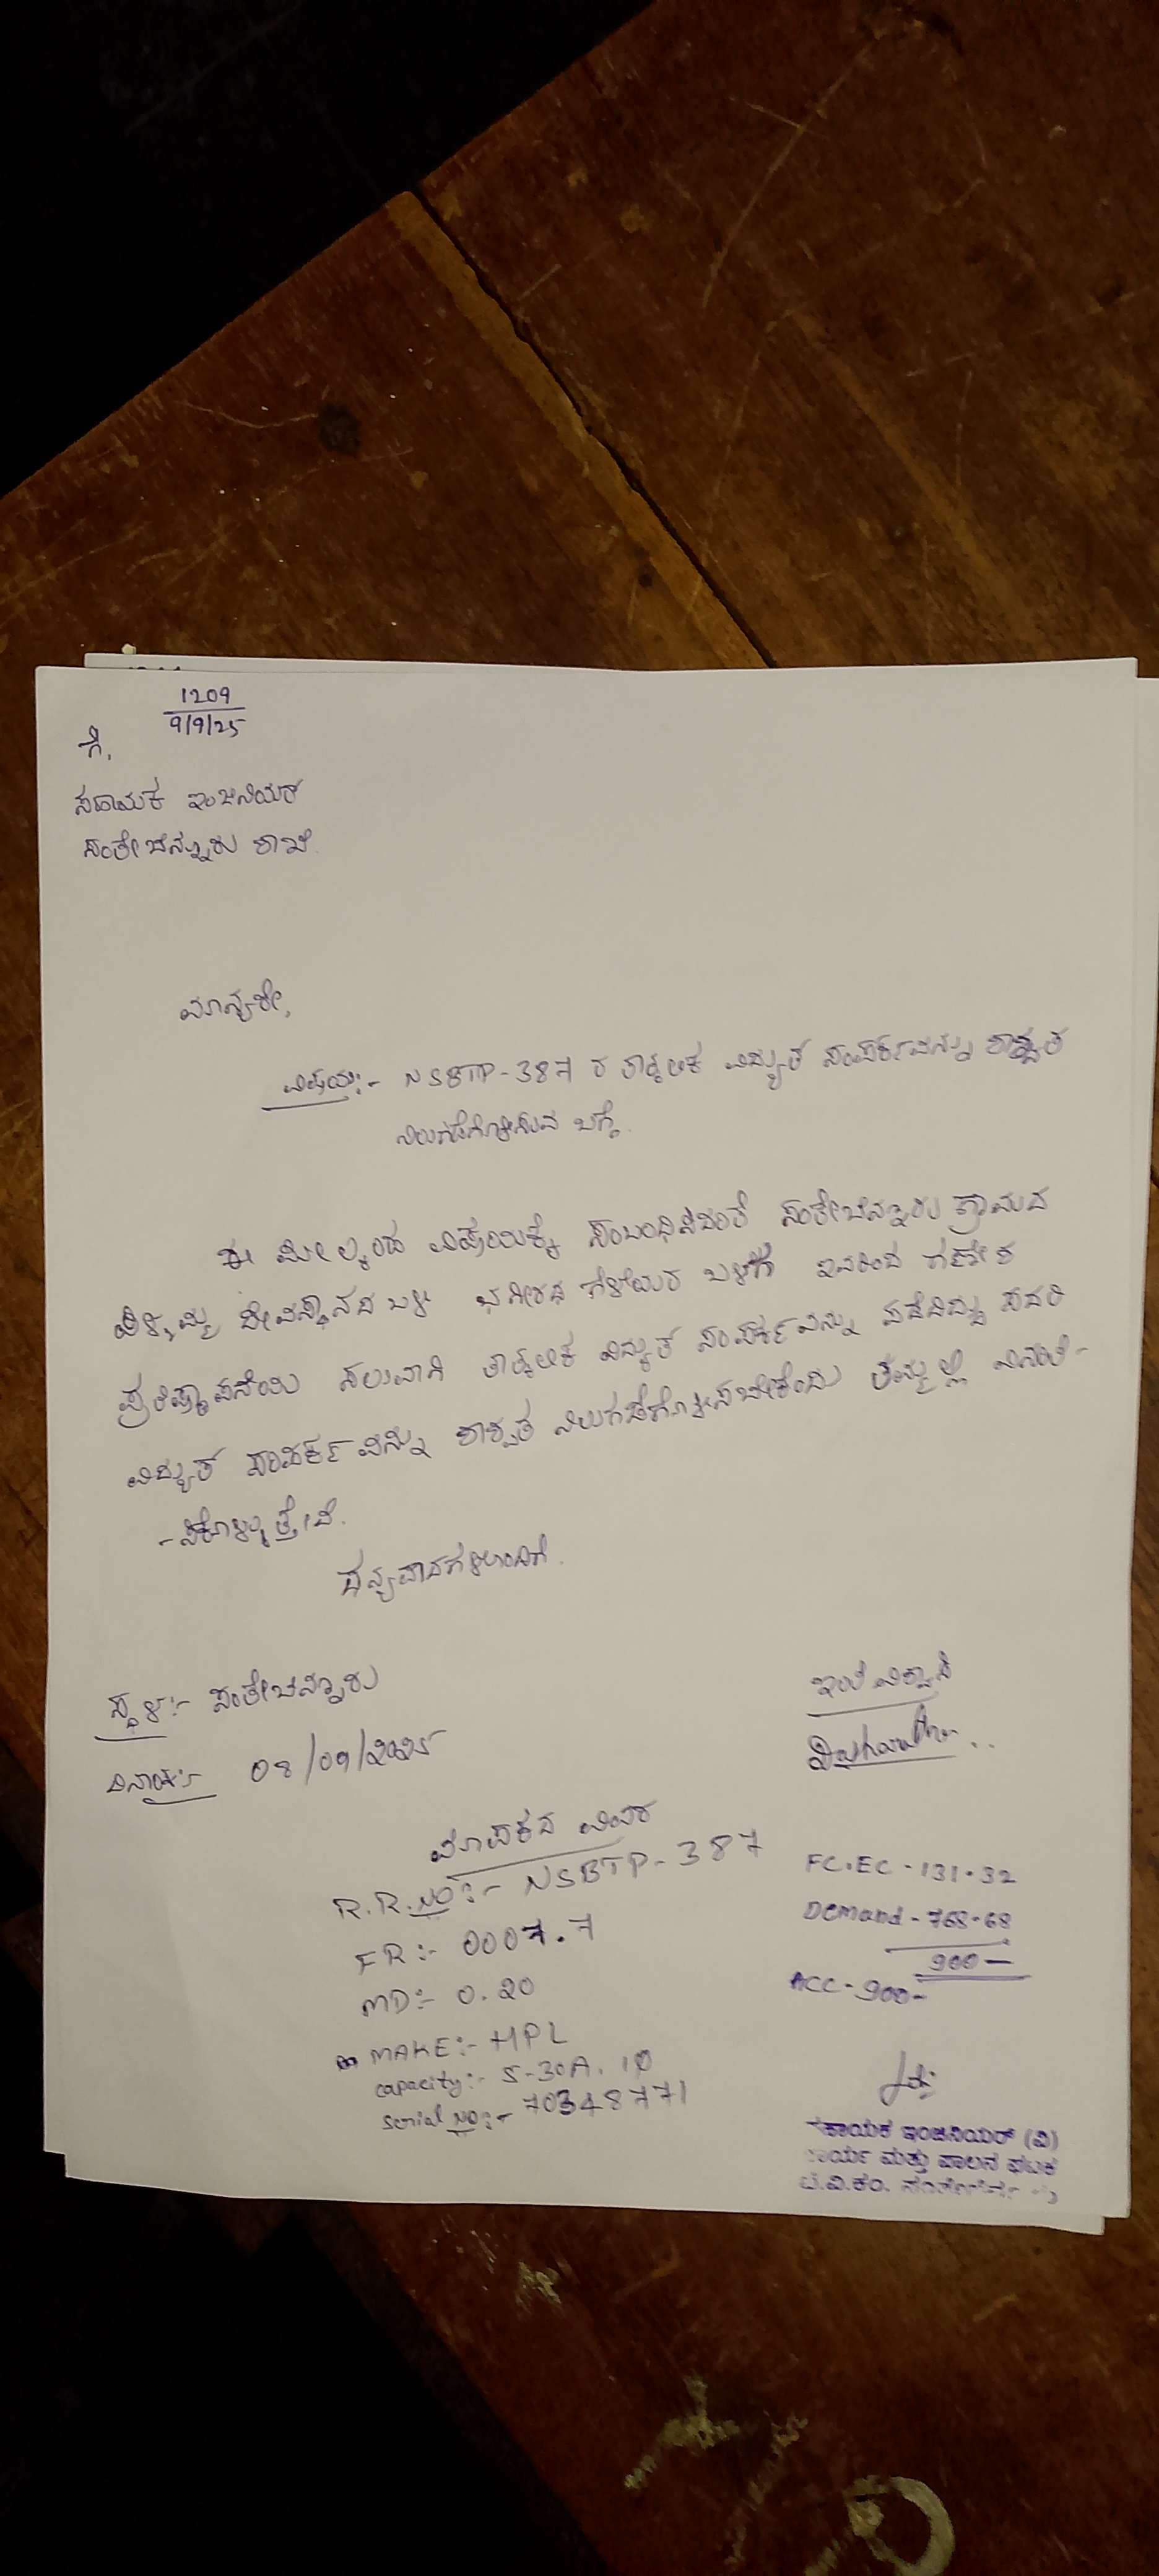 1209
9/9/25
ಗೆ,
ಸಹಾಯಕ ಇಂಜಿನಿಯರ
ಸಂತೇಬೆನ್ನೂರು ಶಾಖೆ.
ಮಾನ್ಯರೇ,
ವಿಷಯ:- NSBTP-387 ರ ತಾತ್ಕಲಿಕ ವಿದ್ಯುತ ಸಂಪರ್ಕವನ್ನು ಶಾಶ್ವತ
ನಿಲುಗಡೆಗೊಳಿಸುವ ಬಗ್ಗೆ.
ಈ ಮೇಲ್ಕಂಡ ವಿಷಯಕ್ಕೆ ಸಂಬಂಧಿಸಿದಂತೆ ಸಂತೇಬೆನ್ನೂರು ಗ್ರಾಮದ
ದೇವಸ್ಥಾನದ ಬಳಿ ಭಗೀರಥ ಗೆಳೆಯರ ಬಳಗ ಇವರಿಂದ ಗಣೇಶ
ಪ್ರತಿಷ್ಠಾಪನೆಯ ಸಲುವಾಗಿ ತಾತ್ಕಲಿಕ ವಿದ್ಯುತ ಸಂಪರ್ಕವನ್ನು ಪಡೆದಿದ್ದು ಸದರಿ
ವಿದ್ಯುತ ಸಂಪರ್ಕವನ್ನು ಶಾಶ್ವತ ನಿಲುಗಡೆಗೊಳಿಸಬೇಕೆಂದು ತಮ್ಮಲ್ಲಿ ವಿನಂತಿ-
-ಸಿಕೊಳ್ಳುತ್ತೇವೆ.
ಧನ್ಯವಾದಗಳೊಂದಿಗೆ.
ಸ್ಥಳ:- ಸಂತೇಬೆನ್ನೂರು
ಇಂತಿ ವಿಶ್ವಾಸಿ
ದಿನಾಂಕ:- 08/09/2025
ಮಾಪಕದ ವಿವರ
R.R.NO:- NSBTP-387
FR:- 0007.7
MD:- 0.20
MAKE:- HPL
capacity:- 5-30A. 1Φ
serial NO:- 70348771
FC.EC - 131.32
Demand - 768.68
900—
ACC - 900-
ಸಹಾಯಕ ಇಂಜಿನಿಯರ್ (ವಿ)
ಕಾರ್ಯ ಮತ್ತು ಪಾಲನ ಘಟಕ
ಬೆ.ವಿ.ಕಂ.